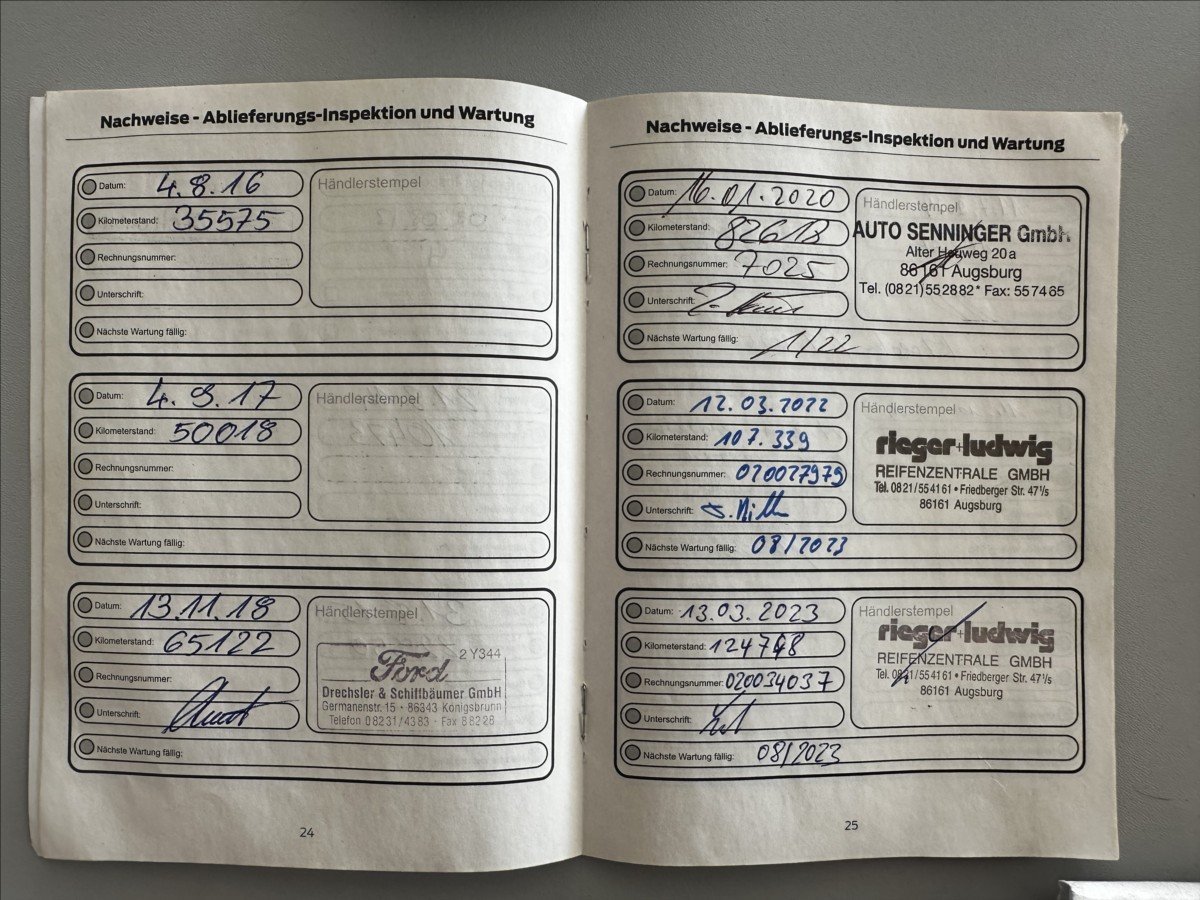 Nachweise - Ablieferungs-Inspektion und Wartung
Datum: 4.8.16
Händlerstempel
Kilometerstand: 35575
Rechnungsnummer:
Unterschrift:
Nächste Wartung fällig:
Datum: 4.9.17
Händlerstempel
Kilometerstand: 50018
Rechnungsnummer:
Unterschrift:
Nächste Wartung fällig:
Datum: 13.11.18
Händlerstempel
Kilometerstand: 65122
Rechnungsnummer:
Unterschrift:
Nächste Wartung fällig:
Ford 2 Y344
Drechsler & Schiffbäumer GmbH
Germanenstr. 15 · 86343 Königsbrunn
Telefon 08231/4383 · Fax 88228
24
Nachweise - Ablieferungs-Inspektion und Wartung
Datum: 16.01.2020
Händlerstempel
Kilometerstand: 82618
Rechnungsnummer: 7025
Unterschrift:
Nächste Wartung fällig: 1/22
AUTO SENNINGER GmbH
Alter Heuweg 20 a
86161 Augsburg
Tel. (0821) 552882* Fax: 557465
Datum: 12.03.2022
Händlerstempel
Kilometerstand: 107.339
Rechnungsnummer: 020027979
Unterschrift:
Nächste Wartung fällig: 08/2023
rieger+ludwig
REIFENZENTRALE GMBH
Tel. 0821/554161 • Friedberger Str. 47 1/s
86161 Augsburg
Datum: 13.03.2023
Händlerstempel
Kilometerstand: 124748
Rechnungsnummer: 020034037
Unterschrift:
Nächste Wartung fällig: 08/2023
rieger+ludwig
REIFENZENTRALE GMBH
Tel. 0821/554161 • Friedberger Str. 47 1/s
86161 Augsburg
25